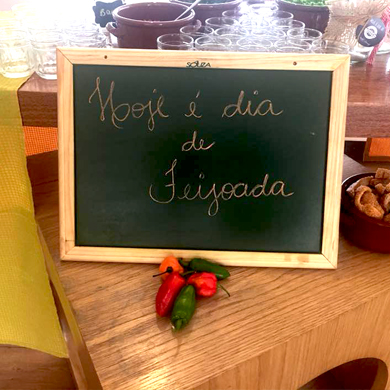 sales
Hoje é dia
de
Feijoada